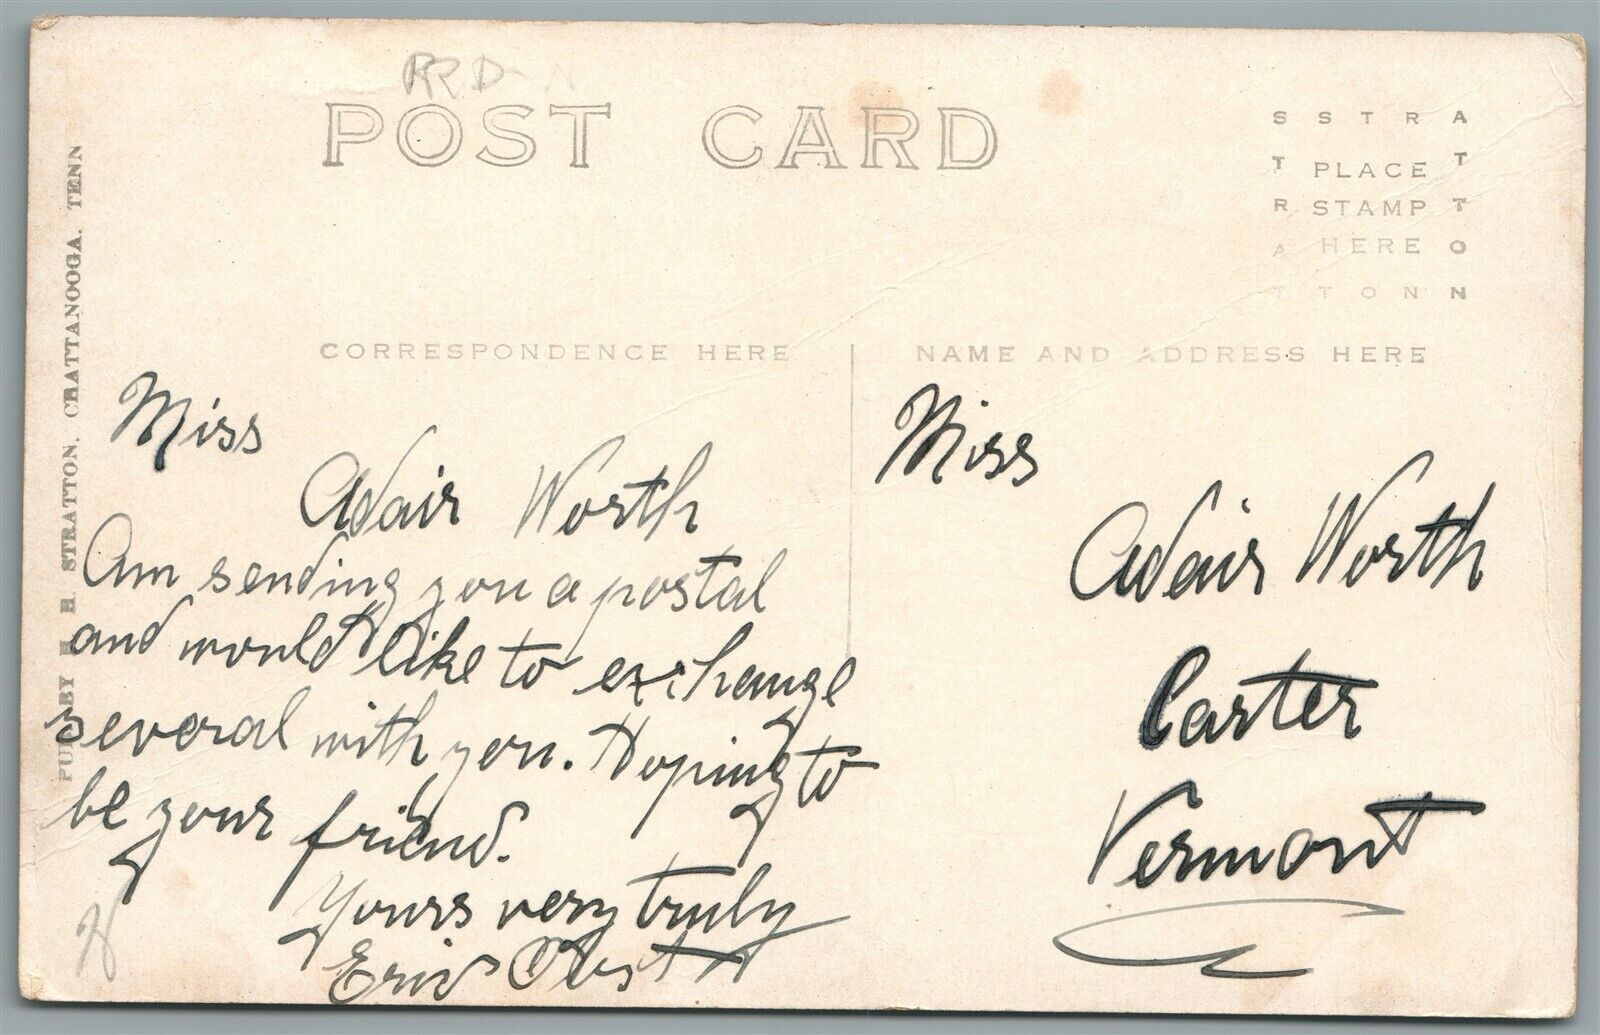 RRD
POST CARD
S S T R A
T PLACE T
R STAMP T
A HERE O
T T O N N
PUB. BY H. H. STRATTON, CHATTANOOGA. TENN
CORRESPONDENCE HERE
NAME AND ADDRESS HERE
Miss
Adair Worth
Am sending you a postal
and would like to exchange
several with you. Hoping to
be your friend.
Yours very truly
H
Miss
Adair Worth
Carter
Vermont